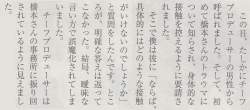 この日、たしかそ
プロデューサーの男性か
呼ばれました。そして、初
めて橋本さんのトラウマに
ついて知らされ、身体的な
接触を控えるように要請さ
れました。
そこで僕は彼に「ならば、
具体的にはどのような接触
がいけないのでしょうか」
と質問をしたのです。とこ
ろが、明確な答えは返って
こなかった。結局、曖昧な
言い方で誤魔化されてしま
いました。
チーフプロデューサーは
橋本さんの事務所に振り回
されているように見えまし
た。